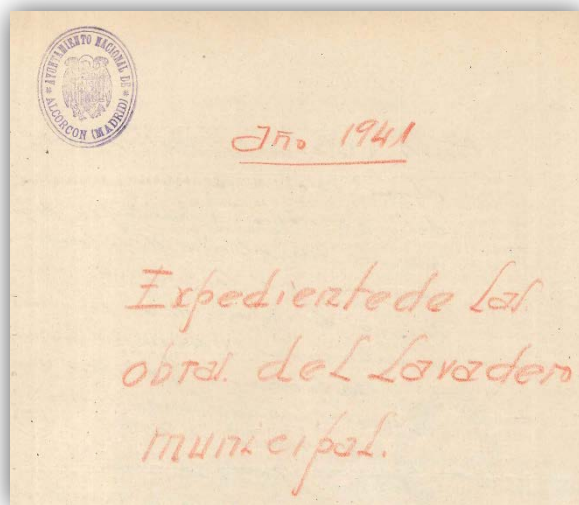 AYUNTAMIENTO NACIONAL DE
ALCORCON (MADRID)
Año 1941
Expediente de las
obras del Lavadero
municipal.